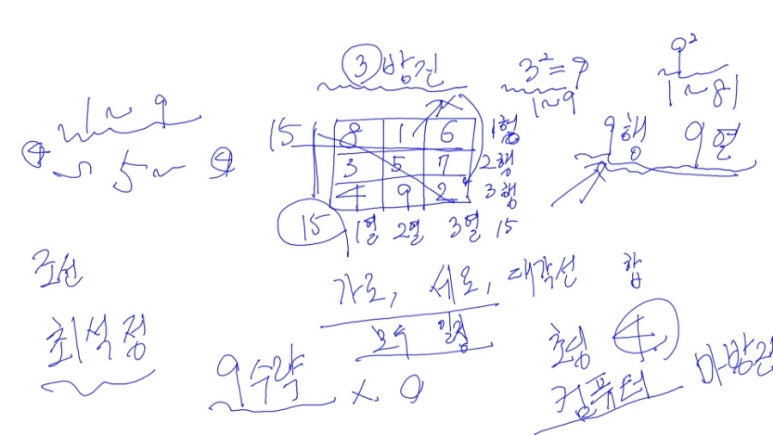 ③ 방진
3² = 9
1~9
9²
1~81
1~9
④ ~ 5 ~ ④
15 8 1 6 1행
3 5 7 2행
4 9 2 3행
15 1열 2열 3열 15
9행 9열
조선
최석정
가로, 세로, 대각선 합
모두 일정
9수략 × 0
초딩 4
컴퓨터 마방진